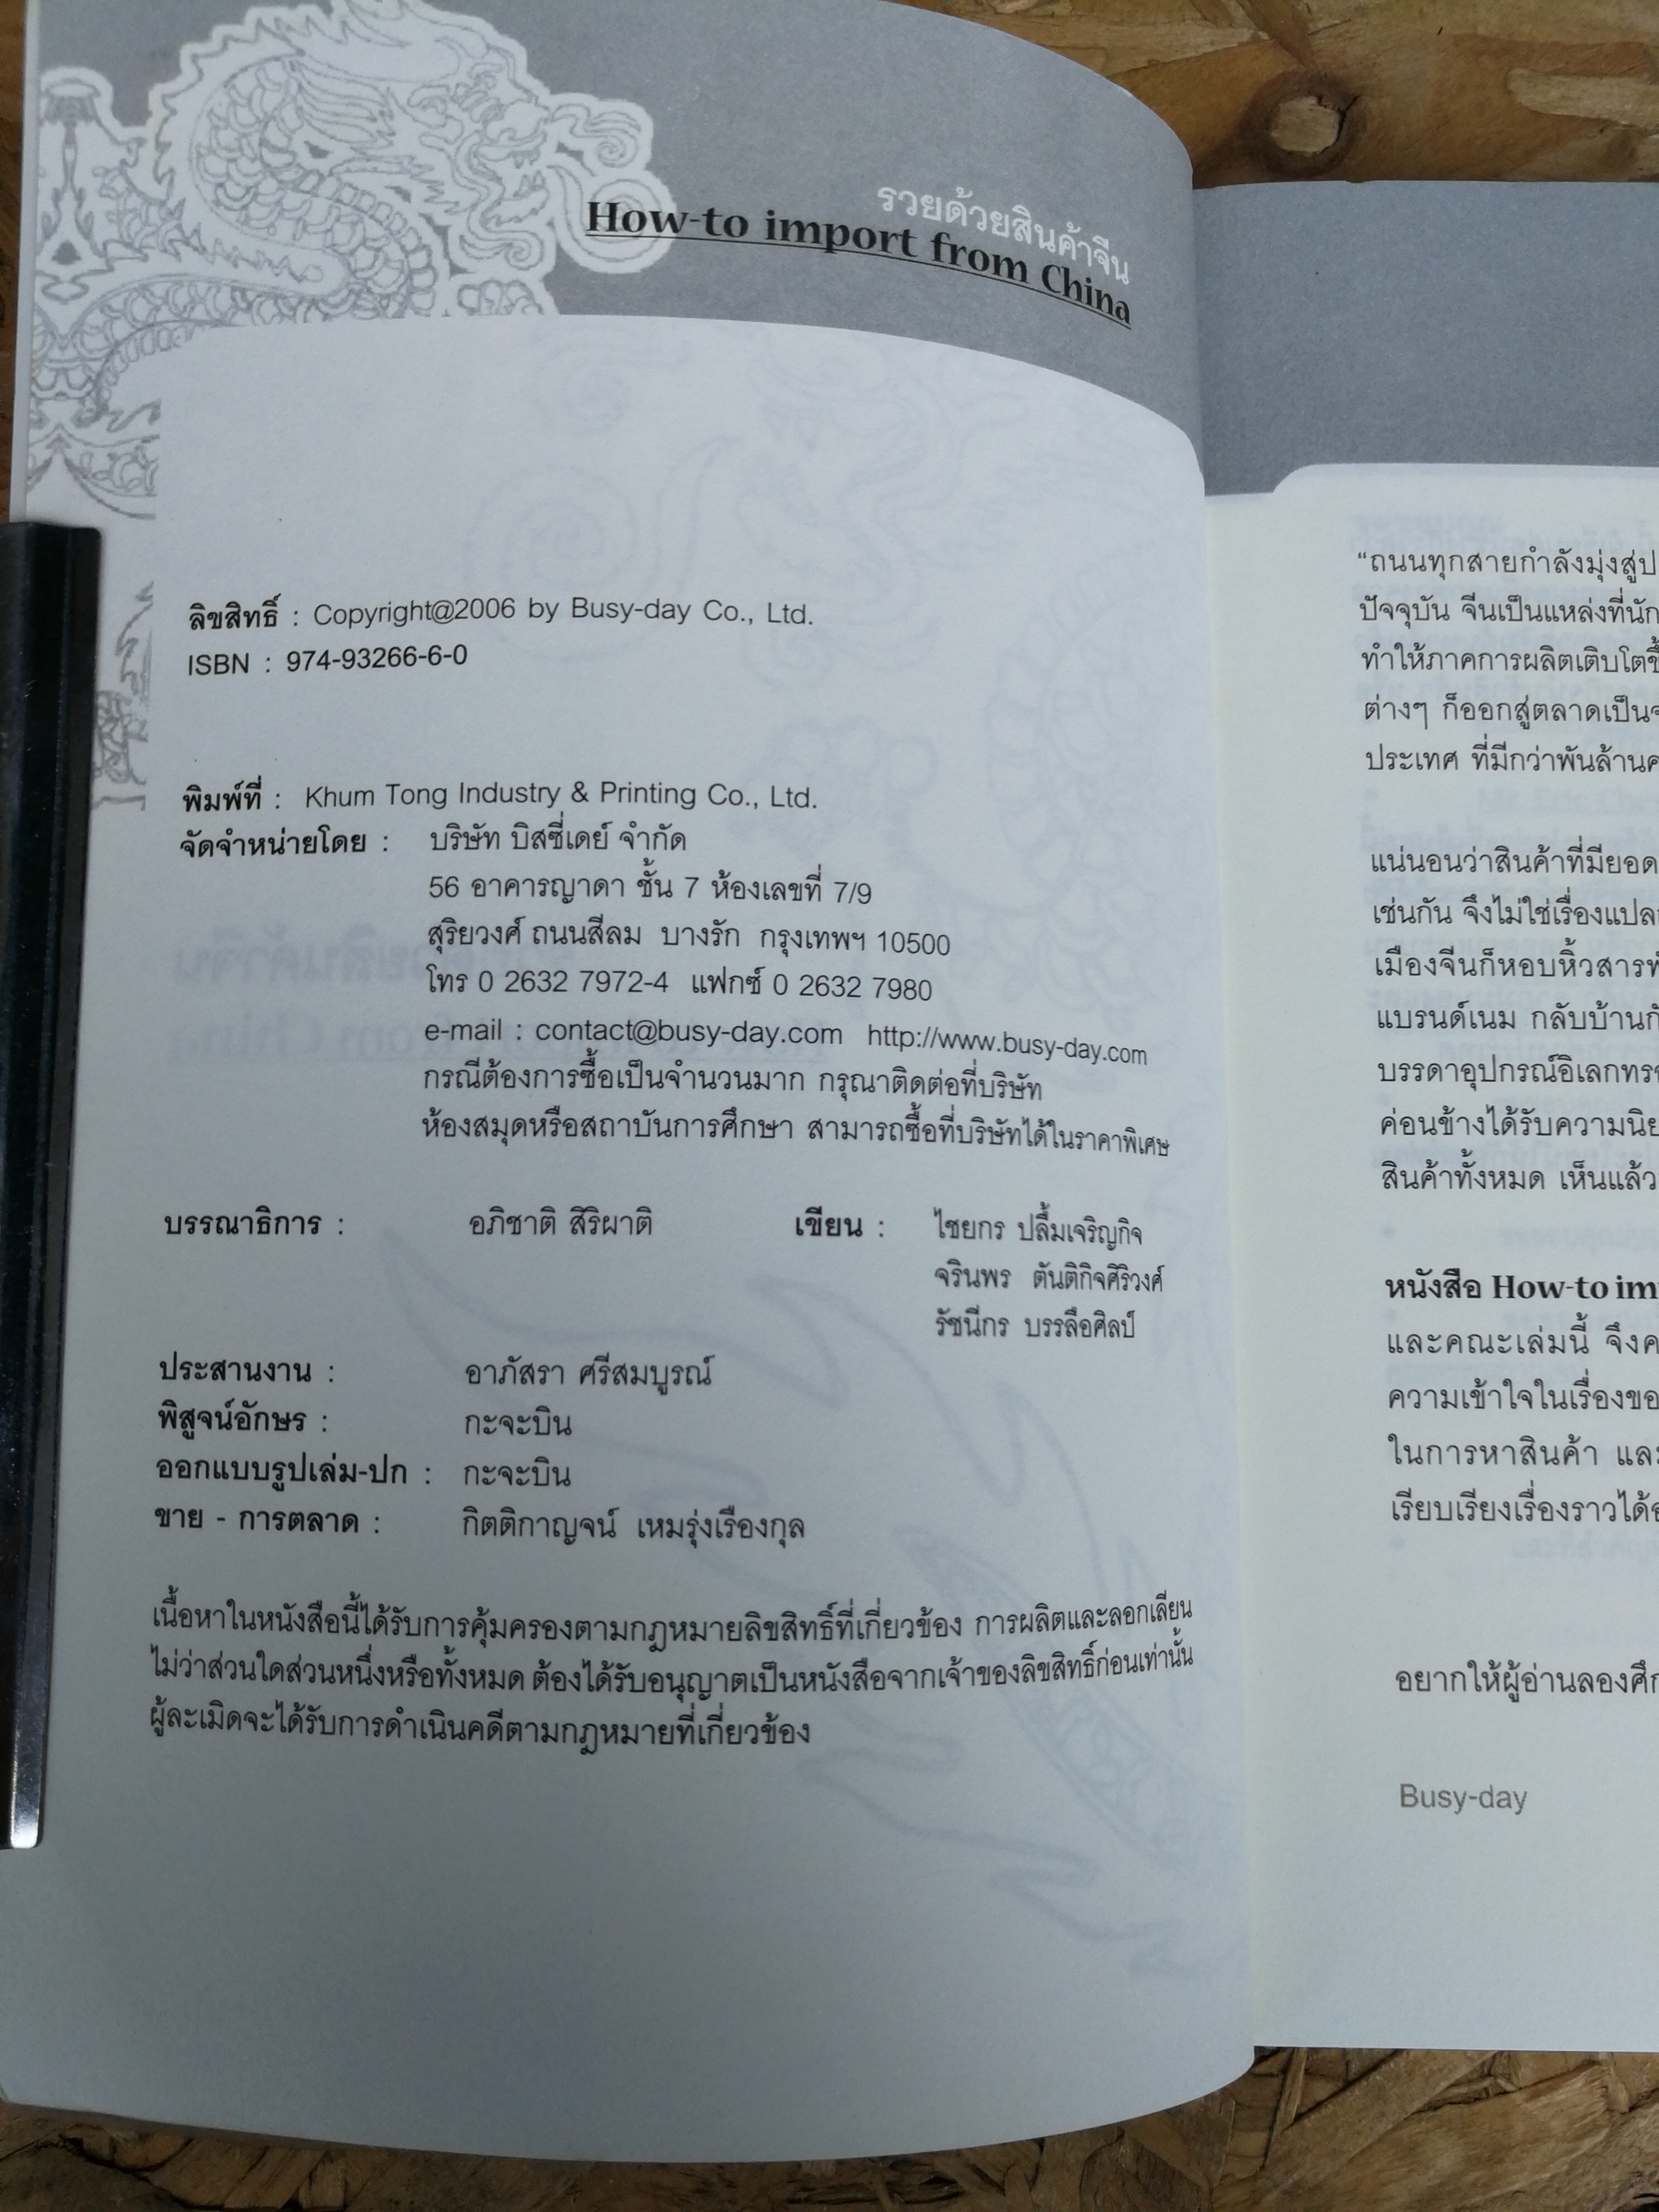 รวยด้วยสินค้าจีน
How-to import from China
ลิขสิทธิ์ : Copyright@2006 by Busy-day Co., Ltd.
ISBN : 974-93266-6-0
พิมพ์ที่ : Khum Tong Industry & Printing Co., Ltd.
จัดจำหน่ายโดย : บริษัท บิสซี่เดย์ จำกัด
56 อาคารญาดา ชั้น 7 ห้องเลขที่ 7/9
สุริยวงศ์ ถนนสีลม บางรัก กรุงเทพฯ 10500
โทร 0 2632 7972-4 แฟกซ์ 0 2632 7980
e-mail : contact@busy-day.com http://www.busy-day.com
กรณีต้องการซื้อเป็นจำนวนมาก กรุณาติดต่อที่บริษัท
ห้องสมุดหรือสถาบันการศึกษา สามารถซื้อที่บริษัทได้ในราคาพิเศษ
บรรณาธิการ : อภิชาติ สิริผาติ เขียน : ไชยกร ปลื้มเจริญกิจ
จรินพร ตันติกิจศิริวงศ์
รัชนีกร บรรลือศิลป์
ประสานงาน : อาภัสรา ศรีสมบูรณ์
พิสูจน์อักษร : กะจะบิน
ออกแบบรูปเล่ม-ปก : กะจะบิน
ขาย - การตลาด : กิตติกาญจน์ เหมรุ่งเรืองกุล
เนื้อหาในหนังสือนี้ได้รับการคุ้มครองตามกฎหมายลิขสิทธิ์ที่เกี่ยวข้อง การผลิตและลอกเลียน
ไม่ว่าส่วนใดส่วนหนึ่งหรือทั้งหมด ต้องได้รับอนุญาตเป็นหนังสือจากเจ้าของลิขสิทธิ์ก่อนเท่านั้น
ผู้ละเมิดจะได้รับการดำเนินคดีตามกฎหมายที่เกี่ยวข้อง
“ถนนทุกสายกำลังมุ่งสู่ป
ปัจจุบัน จีนเป็นแหล่งที่นัก
ทำให้ภาคการผลิตเติบโตขึ้
ต่างๆ ก็ออกสู่ตลาดเป็นจ
ประเทศ ที่มีกว่าพันล้านค
แน่นอนว่าสินค้าที่มียอด
เช่นกัน จึงไม่ใช่เรื่องแปล
เมืองจีนก็หอบหิ้วสารพั
แบรนด์เนม กลับบ้านกั
บรรดาอุปกรณ์อิเลกทร
ค่อนข้างได้รับความนิย
สินค้าทั้งหมด เห็นแล้ว
หนังสือ How-to im
และคณะเล่มนี้ จึงค
ความเข้าใจในเรื่องขอ
ในการหาสินค้า และ
เรียบเรียงเรื่องราวได้อ
อยากให้ผู้อ่านลองศึก
Busy-day